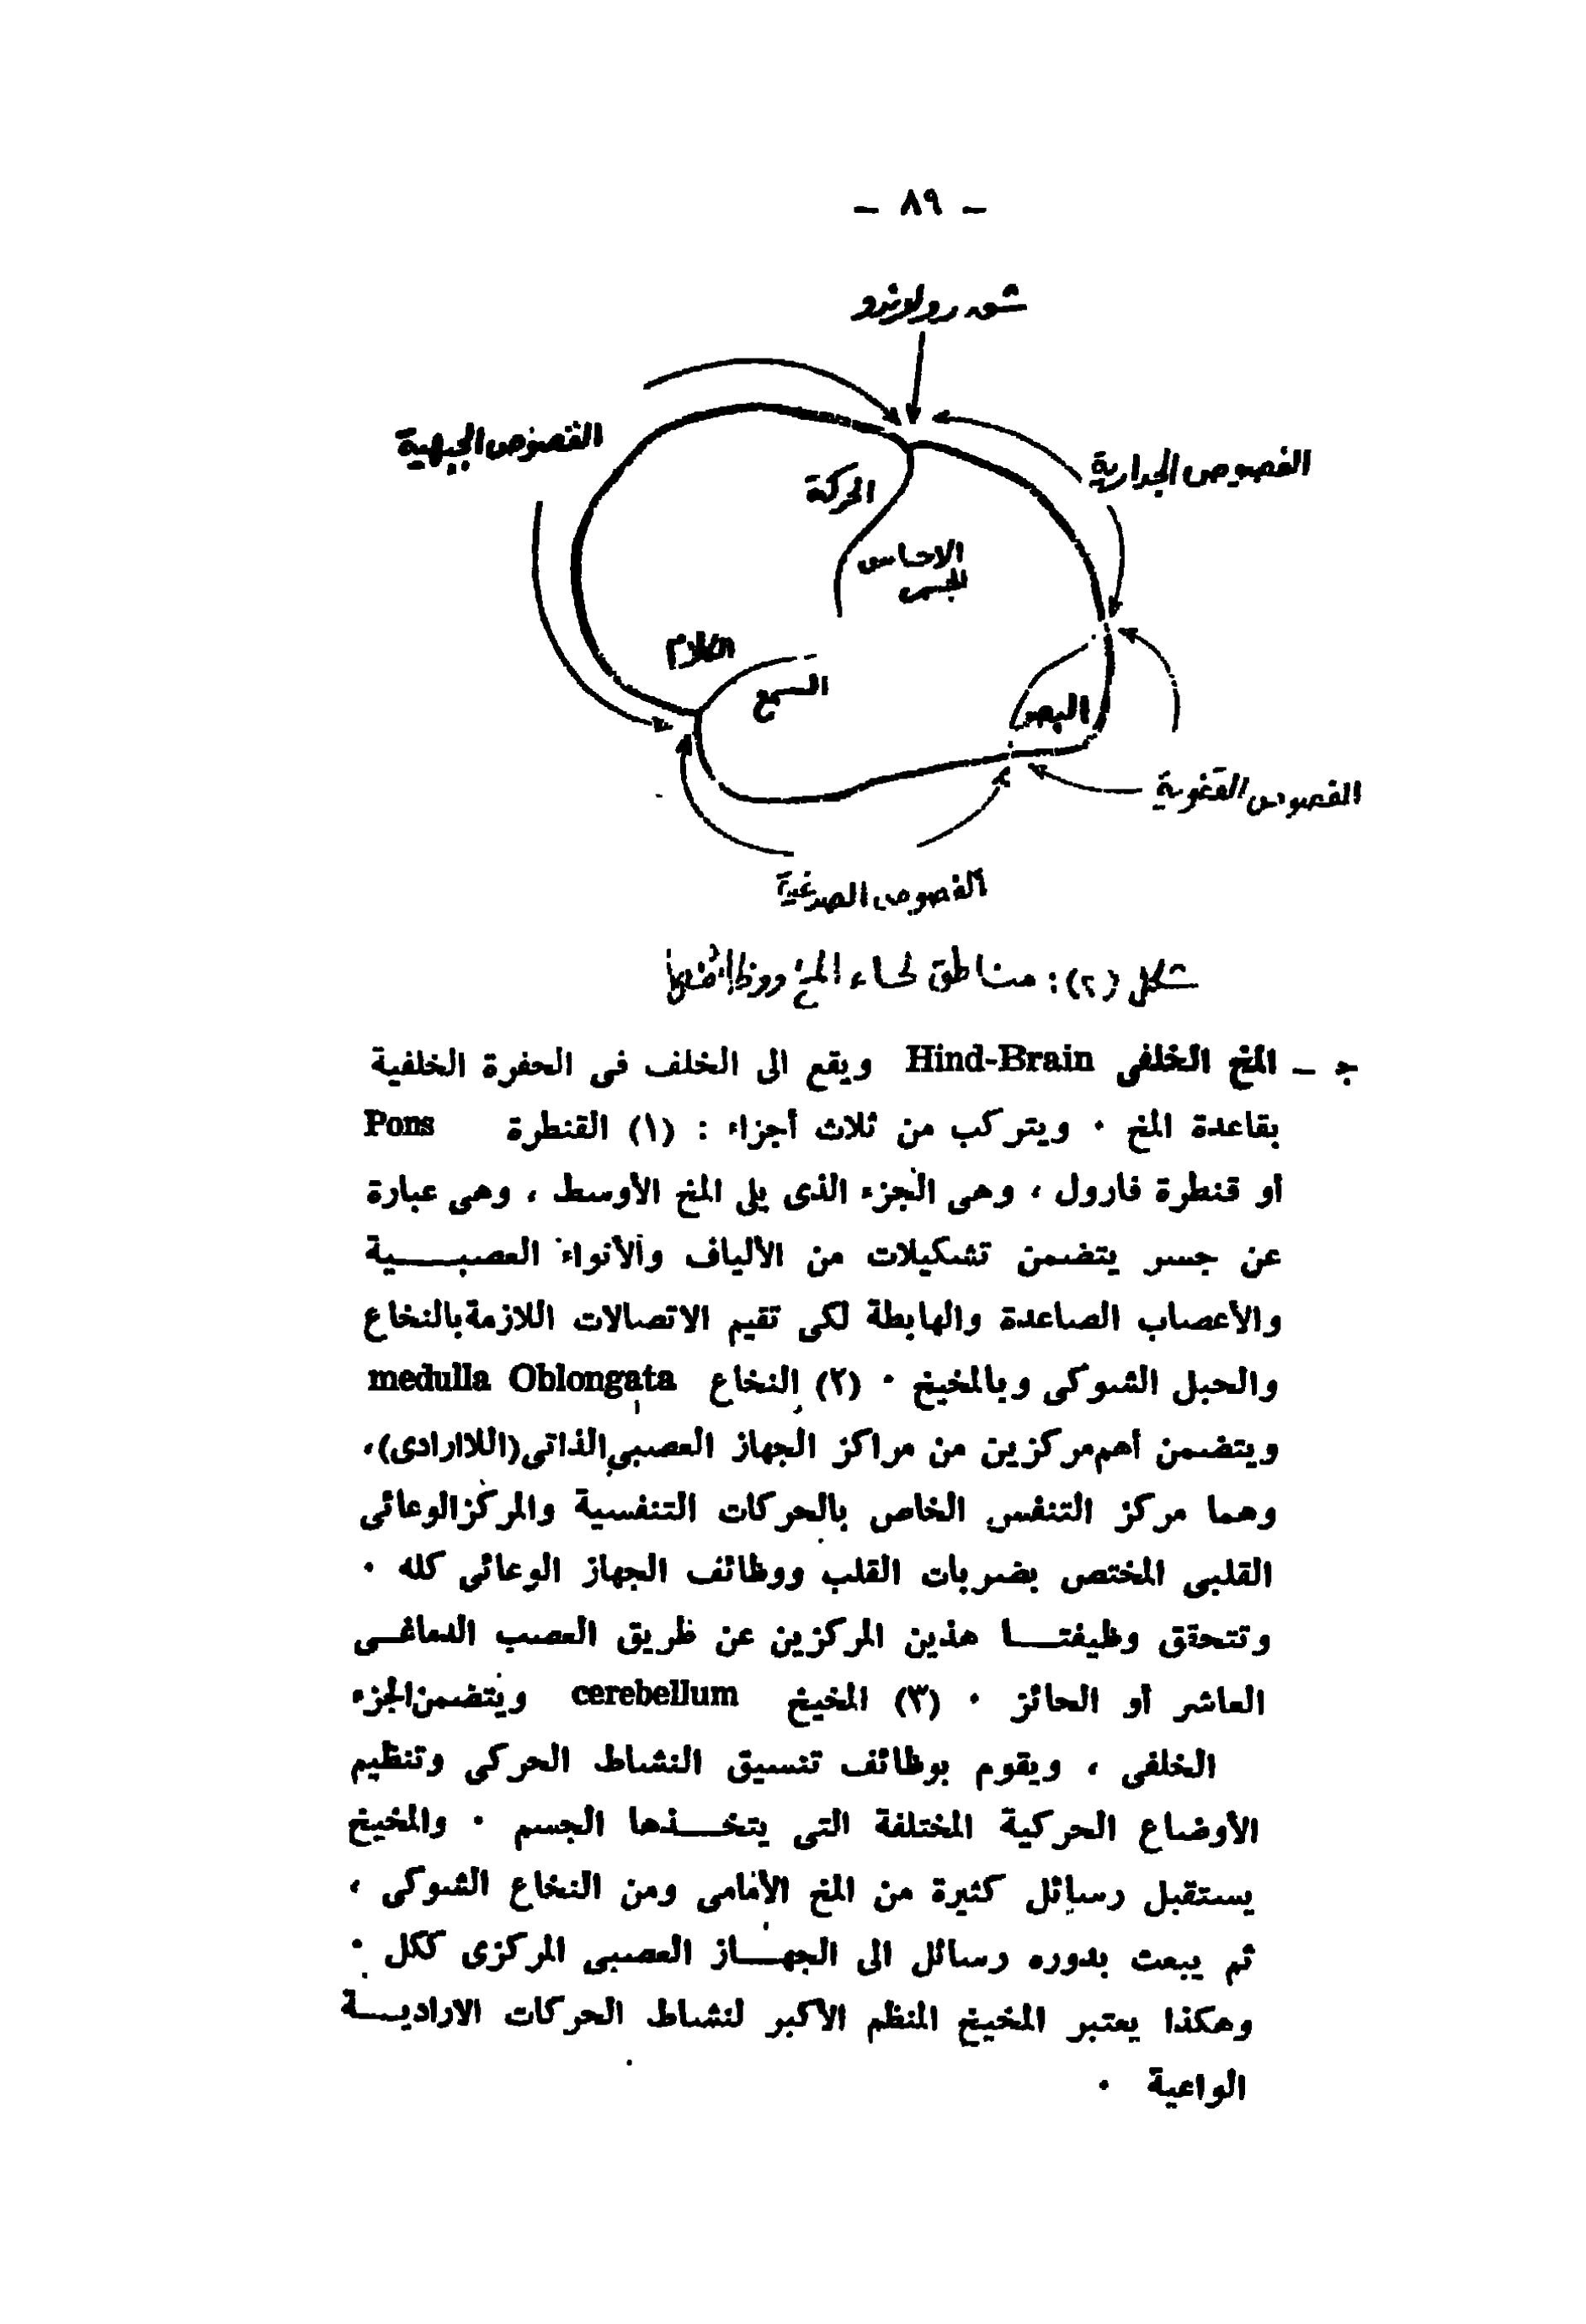 ـ ٨٩ ـ
شق رولاندو
الفصوص الجبهية
الفصوص الجدارية
الحركة
الاحساس
الجسمى
الكلام
السمع
البصر
الفصوص القفوية
الفصوص الصدغية
شكل (٢): مناطق لحاء المخ ووظائفها
جـ ـ المخ الخلفى Hind-Brain ويقع الى الخلف فى الحفرة الخلفية
بقاعدة المخ ٠ ويتركب من ثلاث أجزاء : (١) القنطرة Pons
أو قنطرة فارول ، وهى الجزء الذى يلى المخ الأوسط ، وهى عبارة
عن جسر يتضمن تشكيلات من الألياف والأنواء العصبـــية
والأعصاب الصاعدة والهابطة لكى تقيم الاتصالات اللازمة بالنخاع
والحبل الشوكى وبالمخيخ ٠ (٢) النخاع medulla Oblongata
ويتضمن أهم مركزين من مراكز الجهاز العصبى الذاتى (اللاارادى)،
وهما مركز التنفس الخاص بالحركات التنفسية والمركز الوعائى
القلبى المختص بضربات القلب ووظائف الجهاز الوعائى كله ٠
وتتحقق وظيفتـــا هذين المركزين عن طريق العصب الدماغــى
العاشر أو الحائز ٠ (٣) المخيخ cerebellum ويتضمن الجزء
الخلفى ، ويقوم بوظائف تنسيق النشاط الحركى وتنظيم
الأوضاع الحركية المختلفة التى يتخـــذها الجسم ٠ والمخيخ
يستقبل رسائل كثيرة من المخ الأمامى ومن النخاع الشوكى ،
ثم يبعث بدوره رسائل الى الجهـــاز العصبى المركزى ككل ٠
وهكذا يعتبر المخيخ المنظم الأكبر لنشاط الحركات الاراديـــة
الواعية ٠